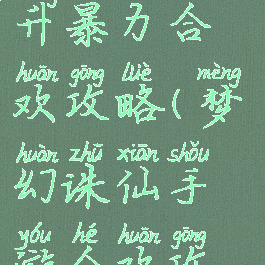 升暴力合
huān gōng lüè mèng
欢攻略(梦
huàn zhū xiān shǒu
幻诛仙手
yóu hé huān gōng
游合欢攻